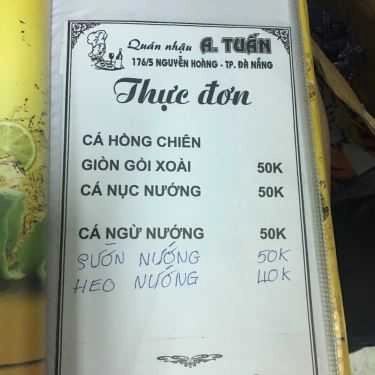 Quán nhậu A. TUẤN
176/5 NGUYỄN HOÀNG - TP. ĐÀ NẴNG
Thực đơn
CÁ HỒNG CHIÊN
GIÒN GỎI XOÀI 50K
CÁ NỤC NƯỚNG 50K
CÁ NGỪ NƯỚNG 50K
SƯỜN NƯỚNG 50K
HEO NƯỚNG 40K